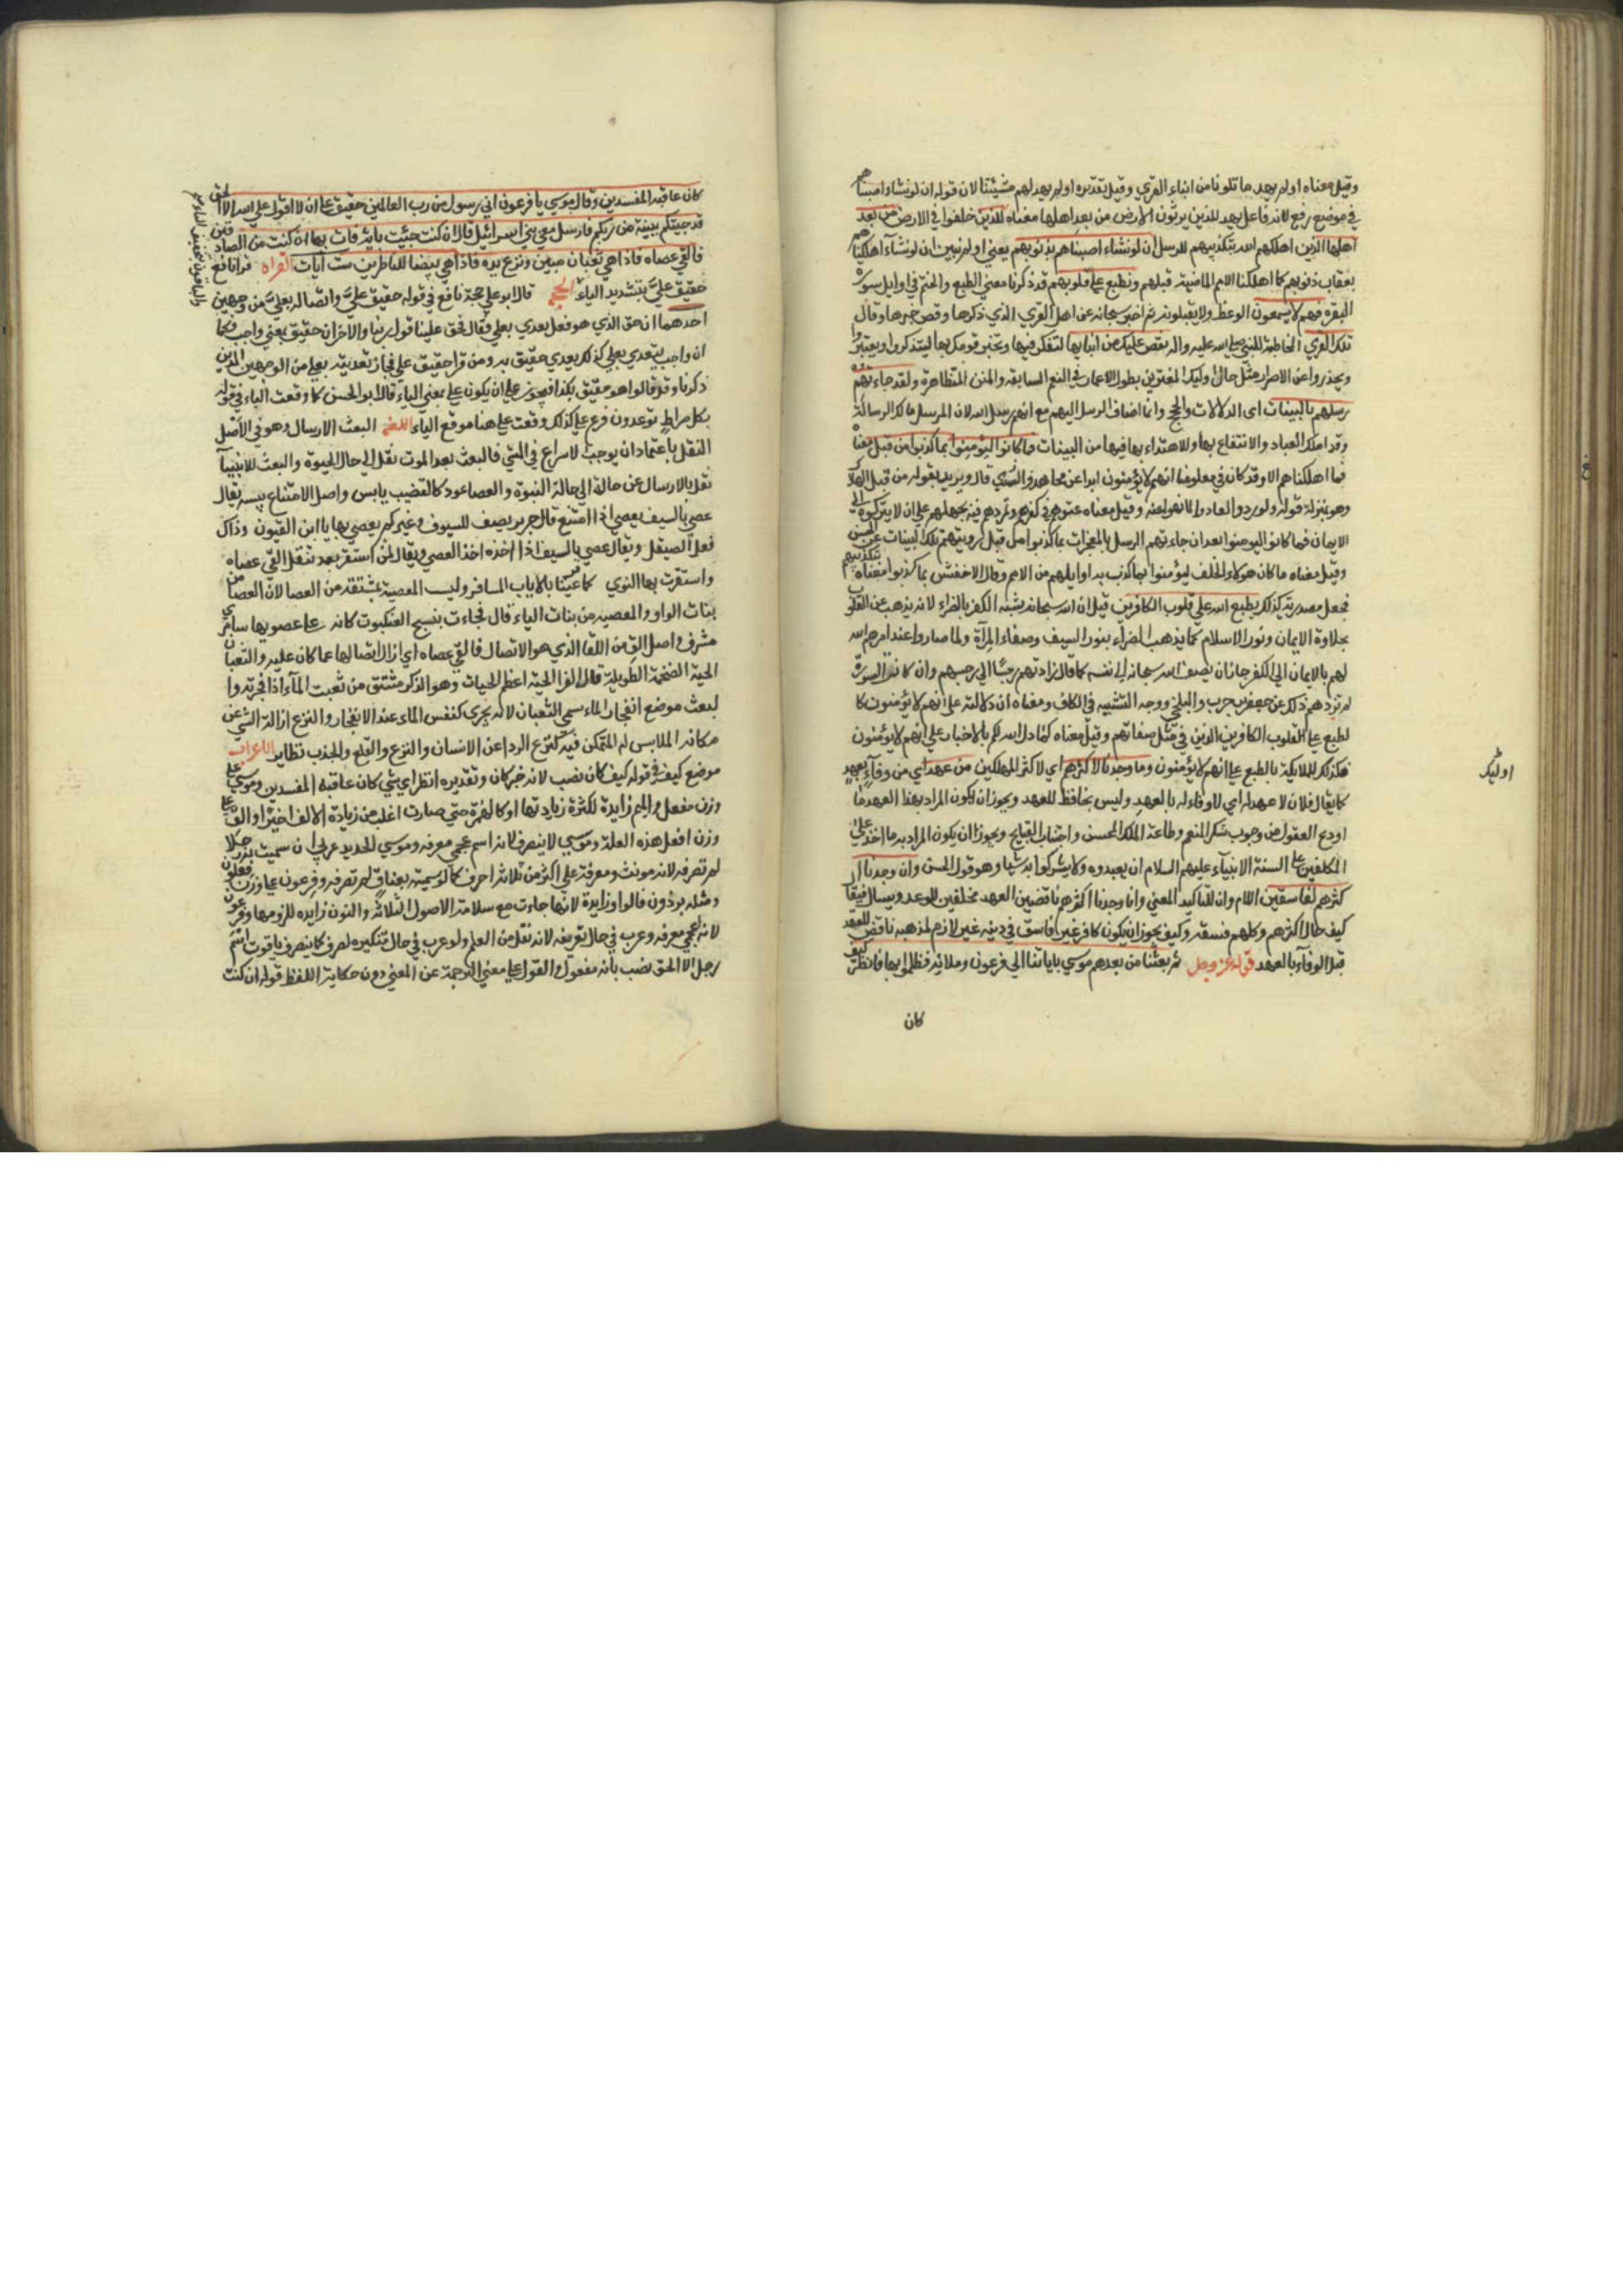 وقيل معناه اولم يهد ما تلونا من انباء القري وقيل تقديره اولم يهد لهم مشيئتنا لان قوله ان لو نشاء اصبناهم
في موضع رفع لانه فاعل يهد للذين يرثون الارض من بعد اهلها معناه للذين خلفوا في الارض من بعد
اهلها الذين اهلكهم الله بتكذيبهم للرسل ان لو نشاء اصبناهم بذنوبهم يعني اولم نبين ان لو نشاء اهلكناهم
بعقاب ذنوبهم كما اهلكنا الامم الماضية قبلهم ونطبع على قلوبهم قد ذكرنا معني الطبع والختم في اوايل سورة
البقرة فهم لا يسمعون الوعظ ولا يقبلونه ثم اخبر سبحانه عن اهل القري الذي ذكرها وقص خبرها وقال
تلك القري المخاطبة للنبي صلى الله عليه واله نقص عليك من انبايها لتفكر فيها وتخبر قومك بها ليتذكروا ويعتبروا
ويحذروا عن الاصرار مثل حال اوليك المغترين بطول الامهال في النعم السابغة والمنن المتظاهرة ولقد جاءتهم
رسلهم بالبينات اي الدلالات والحجج وانما اضاف الرسل اليهم مع انهم رسل الله لان المرسل مالك الرسالة
وقد ملك العباد والانتفاع بها والاهتداء بها فيها من البينات فما كانوا ليؤمنوا بما كذبوا من قبل معناه
فما اهلكناهم الا وقد كان في معلومنا انهم لا يؤمنون ابدا عن مجاهد والسدي قال ويريد بقوله من قبل الهلاك
وهو بمنزلة قوله ولو ردوا لعادوا لما نهوا عنه وقيل معناه عتوهم في كفرهم وتمردهم فيه يحملهم على ان لا يتركوه الى
الايمان فما كانوا ليؤمنوا بعد ان جاءتهم الرسل بالمعجزات بما كذبوا من قبل رؤيتهم تلك البينات عن الحسن
وقيل معناه ما كان هولاء الخلف ليؤمنوا بما كذب به اوايلهم من الامم وقال الاخفش بما كذبوا معناه بتكذيبهم
فجعل ما مصدرية كذلك يطبع الله على قلوب الكافرين قيل ان الله سبحانه شبه الكفر بالصداء لانه يذهب عن القلوب
بحلاوة الايمان ونور الاسلام كما يذهب الصداء بنور السيف وصفاء المرآة ولما صاروا عند امر هم الله
لهم بالايمان الي الكفر جاز ان يضيف الله سبحانه الي نفسه كما قال زادتهم رجسا الي رجسهم وان كانت السورة
لم تزدهم ذلك عن جعفر بن حرب والبلخي ووجه التشبيه في الكاف ومعناه ان دلالته على انهم لا يؤمنون كا
لطبع على القلوب الكافرين الذين في مثل صفاتهم وقيل معناه كما دل الله لكم بالاخبار على انهم لا يؤمنون
فكذلك للملايكة بالطبع على انهم لا يؤمنون وما وجدنا لاكثرهم اي لاكثر المهلكين من عهد اي من وفاء بعهد
كما يقال فلان لا عهد له اي لا وفاء له بالعهد وليس بحافظ للعهد ويجوز ان يكون المراد بهذا العهد ما
اودع العقول من وجوب شكر المنعم وطاعة الملك المحسن واجتناب القبايح ويجوز ان يكون المراد به ما اخذ على
المكلفين على السنة الانبياء عليهم السلام ان يعبدوه ولا يشركوا به شيا وهو قول الحسن وان وجدنا ا
كثرهم لفاسقين اللام وان للتاكيد المعني وانا وجدنا اكثرهم ناقضين العهد مخلفين الوعد ويسال فيقال
كيف حال اكثرهم وكلهم فسقة وكيف يجوز ان يكون كافر غير فاسق في دينه غير لازم لمذهبه ناقض للعهد
قبل الوفاء بالعهد قوله عز وجل ثم بعثنا من بعدهم موسي باياتنا الي فرعون وملائه فظلموا بها فانظر كيف
كان
اوليك
كان عاقبة المفسدين وقال موسي يا فرعون اني رسول من رب العالمين حقيق على ان لا اقول على الله الا الحق
قد جيتكم ببينة من ربكم فارسل معي بني اسرائيل قال ان كنت جئت باية فات بها ان كنت من الصادقين
فالقي عصاه فاذا هي ثعبان مبين ونزع يده فاذا هي بيضا للناظرين ست ايات القراه قرا نافع
حقيق علي بتشديد الياء الحجة قال ابو علي حجة نافع في قوله حقيق علي واتصاله بعلي من وجهين
والباقون بتخفيف الياء
احدهما ان حق الذي هو فعل يعدي بعلي فقال فحق علينا قول ربنا والاخر ان حقيق بمعني واجب فكما
ان واجب يتعدي بعلي كذلك يعدي حقيق به ومن قرا حقيق على فجاز تعديته بعلي من الوجهين الذين
ذكرنا وقد قالوا هو حقيق بكذا فيجوز على ان يكون على بمعني الباء قال ابو الحسن كما وقعت الباء في قوله
بكل صراط توعدون فرع على كذلك وقعت على هنا موقع الباء اللغة البعث الارسال وهو في الاصل
النقل باعتماد ان يوجب لاسراع في الشي فالبعث بعد الموت نقل الى حال الحيوة والبعث للانبيآ
نقل بالارسال عن حالة الي حالة النبوة والعصا عود كالقضيب يابس واصل الامتناع بيبسه يقال
عصي بالسيف يعصي اذا امتنع قال جرير يصف للسيوف وغيركم يعصي بها يا ابن القيون وذاك
فعل الصيقل ويقال عصي بالسيف اذا اخذه اخذ العصي ويقال لمن استقر بعد تنقل القي عصاه
واستقرت بها النوي كما عينا بالاياب المسافر وليست المعصية بمشتقة من العصا لان العصا من
بنات الواو والمعصية من بنات الياء قال فجاءت بنسج العنكبوت كانه على عصويها سابري
مشرف واصل الق من اللقا الذي هو الاتصال فالقي عصاه اي ازال اتصالها عما كان عليه والثعبان
الحية الضخمة الطويلة قال الفرا الحية اعظم الحيات وهو الذكر مشتق من ثعبت المآء اذا فجرته وا
لبعث موضع انفجار الماء سمي الثعبان لانه يجري كنفس الماء عند الانفجار والنزع ازالة الشي عن
مكانه الملابس له المتمكن فيه كنزع الردا عن الانسان والنزع والقلع والجذب نظاير الاعراب
موضع كيف في قوله كيف كان نصب لانه خبر كان وتقديره انظر اي شي كان عاقبة المفسدين وموسي على
وزن مفعل والميم زايدة لكثرة زيادتها اوكا لهمزة حتي صارت اغلب من زيادة الالف اخيرا والف على
وزن افعل هذه العلة وموسي لا ينصرف لانه اسم عجمي معرفة وموسي الحديد عربي ان سميت به رجلا
لم تصرفه لانه مونث ومعرفة على اكثر من ثلاثة احرف كما لو سميته بعناق لم تصرفه وفرعون على وزن فعلون
ومثله برذون فالواو زايدة لانها جاءت مع سلامة الاصول الثلاثة والنون زايدة للزومها وفرعون
لانه اعجمي معرفة وعرب في حال تعريفه لانه نقل من العلم ولو عرب في حال تنكيره لصرف كما ينصرف ياقوت اسم
رجل الا الحق نصب بانه مفعول والقول على معني الترجمة عن المعني دون حكاية اللفظ قوله ان كنت